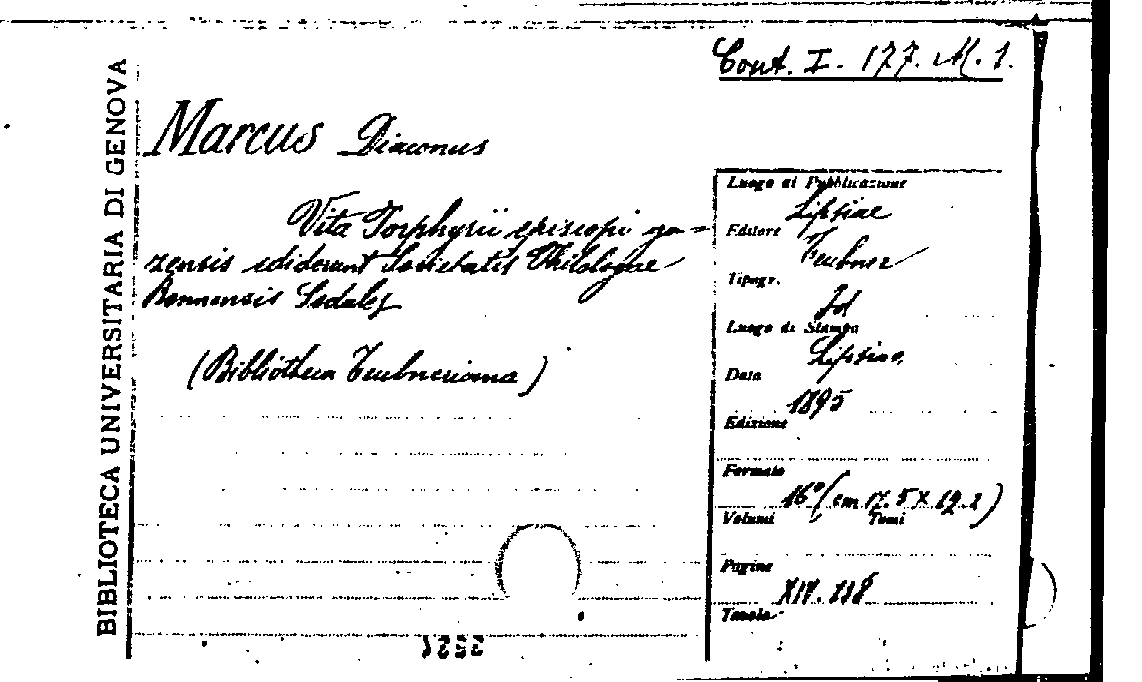 Cont. I. 177. M. 1.
BIBLIOTECA UNIVERSITARIA DI GENOVA
Marcus Diaconus
Vita Porphyrii episcopi ga=
zensis ediderunt Societatis Philologae
Bonnensis Sodales
(Bibliotheca Teubneriana)
Luogo di Pubblicazione
Lipsiae
Editore
Teubner
Tipogr.
Id
Luogo di Stampa
Lipsiae
Data
1895
Edizione
Formato
16° (cm 17.5 X 12.2)
Volumi Tomi
Pagine
XIV. 118
Tavole